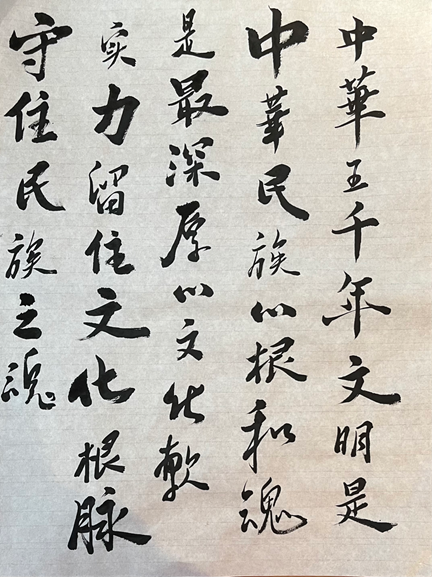 中華五千年文明是
中華民族的根和魂
是最深厚的文化軟
实力留住文化根脉
守住民族之魂